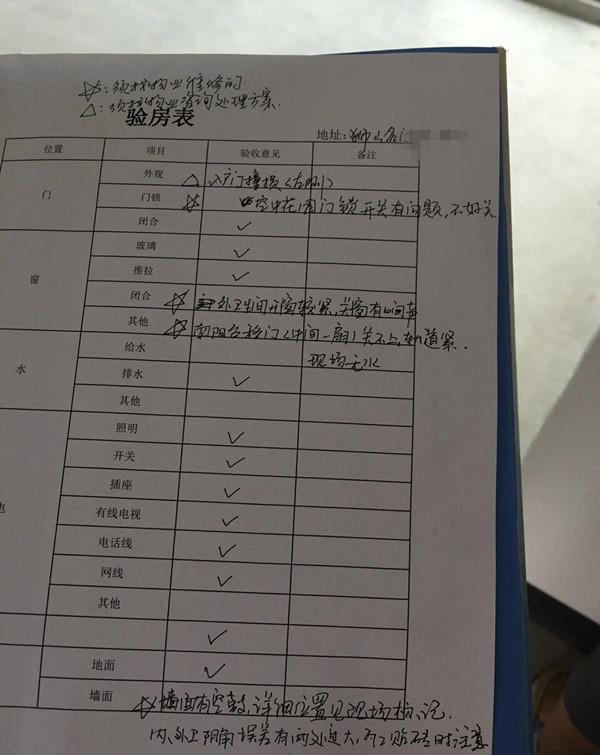 ☆：须找物业维修的.
△：须找物业咨询处理方案.
验房表
地址：狮山名门
位置 项目 验收意见 备注
门 外观 △ 入户门撞损（左侧）
门锁 ☆ 空中花园门锁开关有问题，不好关
闭合 ✓
窗 玻璃 ✓
推拉 ✓
闭合 ☆ 外卫生间开窗较紧，关窗有
其他 ☆ 南阳台移门（中间一扇）关不上，轨道紧.
水 给水 现场无水
排水 ✓
其他
电 照明 ✓
开关 ✓
插座 ✓
有线电视 ✓
电话线 ✓
网线 ✓
其他
✓
地面 ✓
墙面 ☆ 墙面有空鼓，详细位置见现场标记.
内、外卫阴角误差有两处过大，贴砖时注意